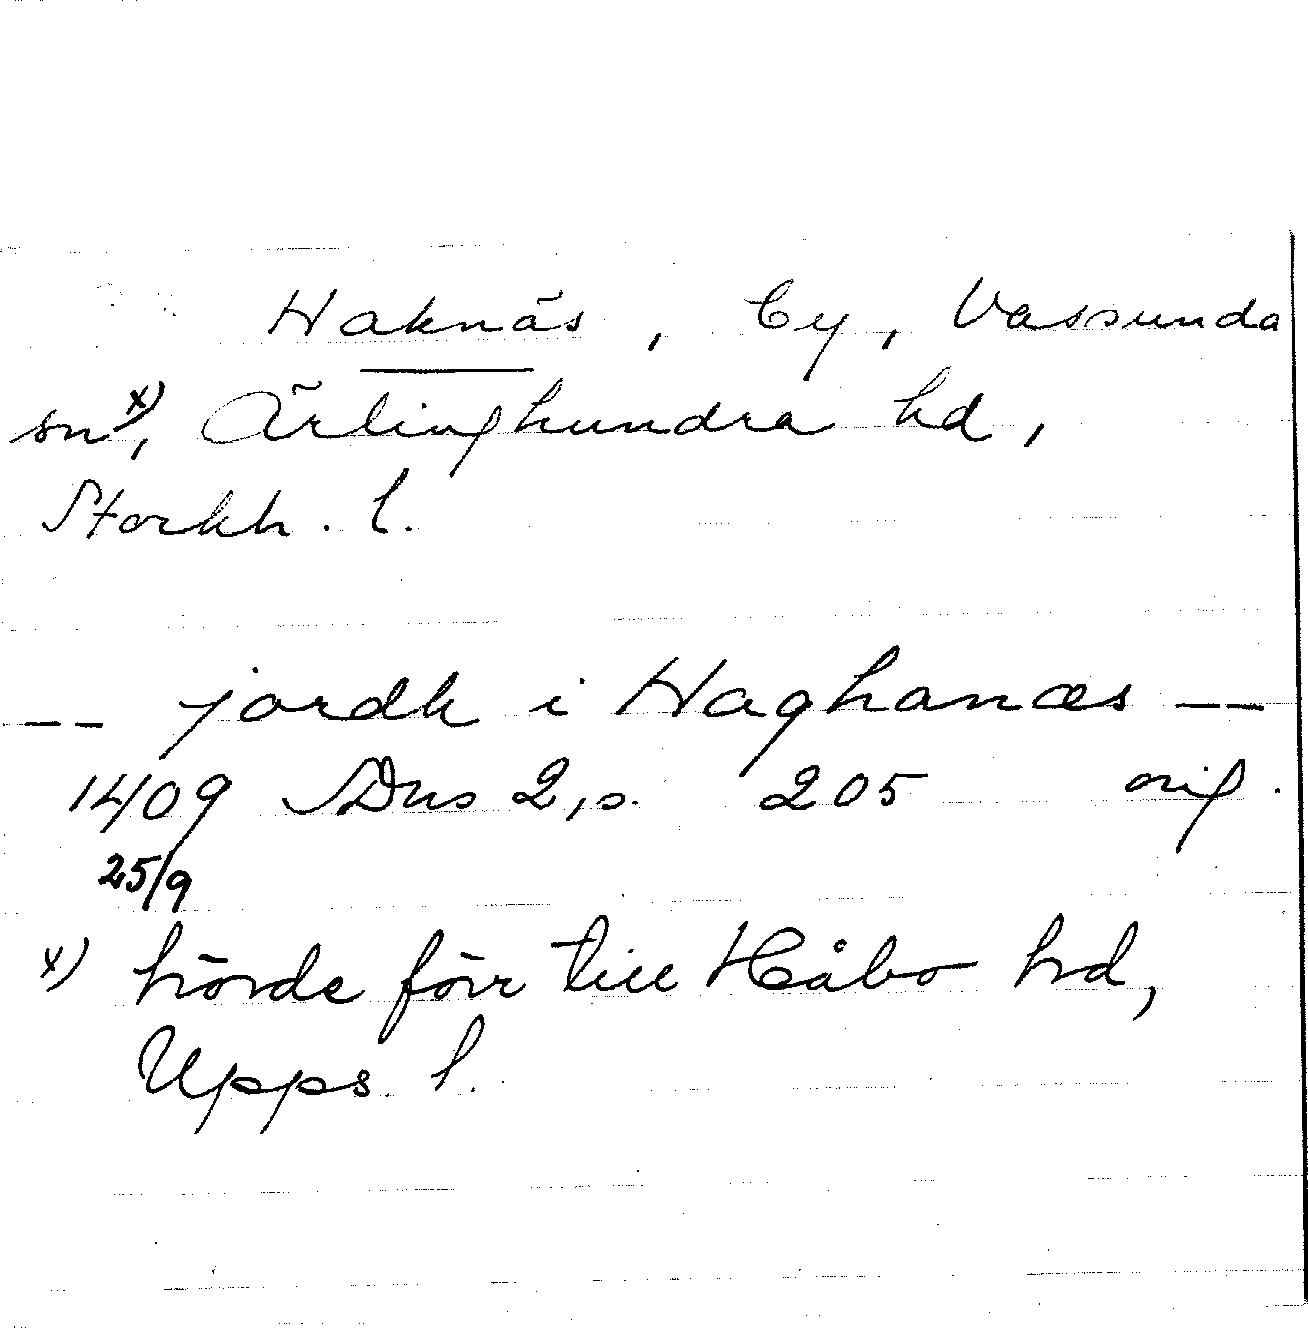 Haknäs, by, Vassunda
sn x), Ärlinghundra hd,
Stockh. l.
-- jordh i Haghanæs --
1409 SDns 2, s. 205 orig.
25/9
x) hörde förr till Håbo hd,
Upps. l.